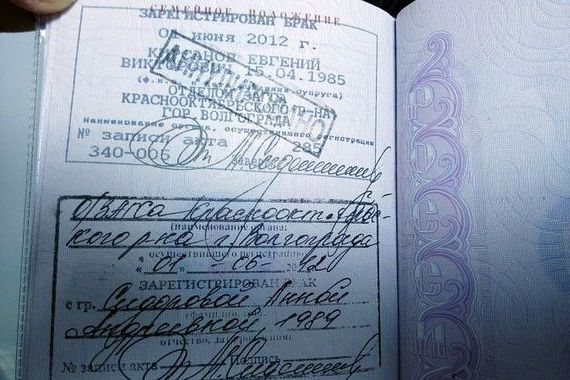 СЕМЕЙНОЕ ПОЛОЖЕНИЕ
ЗАРЕГИСТРИРОВАН БРАК
июня 2012 г.
ЕВГЕНИЙ
15.04.1985
ОТДЕЛОМ ЗАГСА
КРАСНООКТЯБРЬСКОГО Р-НА
ГОР. ВОЛГОГРАДА
наименование органа, осуществившего регистрацию
№ записи акта 285
340-006
О/ЗАГСа Краснооктябрьс-
кого р-на г. Волгограда
(наименование органа,
осуществившего регистрацию)
"01" 06
ЗАРЕГИСТРИРОВАН БРАК
с гр. Сидоровой Анной
Андреевной, 1989
№ записи акта
Подпись